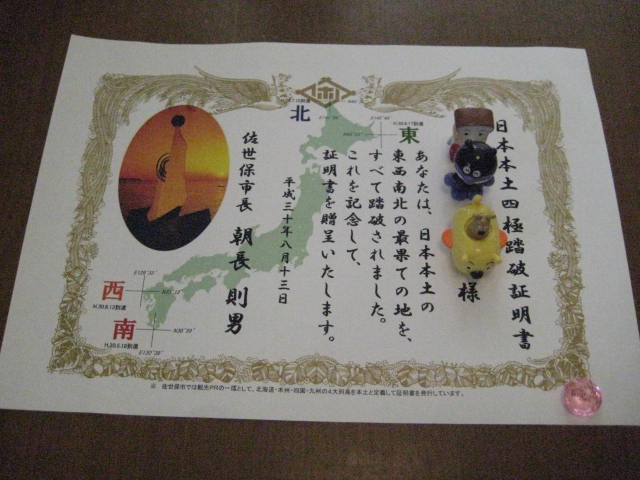 日本本土四極踏破証明書
様
あなたは、日本本土の
東西南北の最果ての地を、
すべて踏破されました。
これを記念して、
証明書を贈呈いたします。
平成三十年八月十三日
佐世保市長 朝長 則男
北
東
西
南
※ 佐世保市では観光PRの一環として、北海道・本州・四国・九州の4大列島を本土と定義して証明書を発行しています。